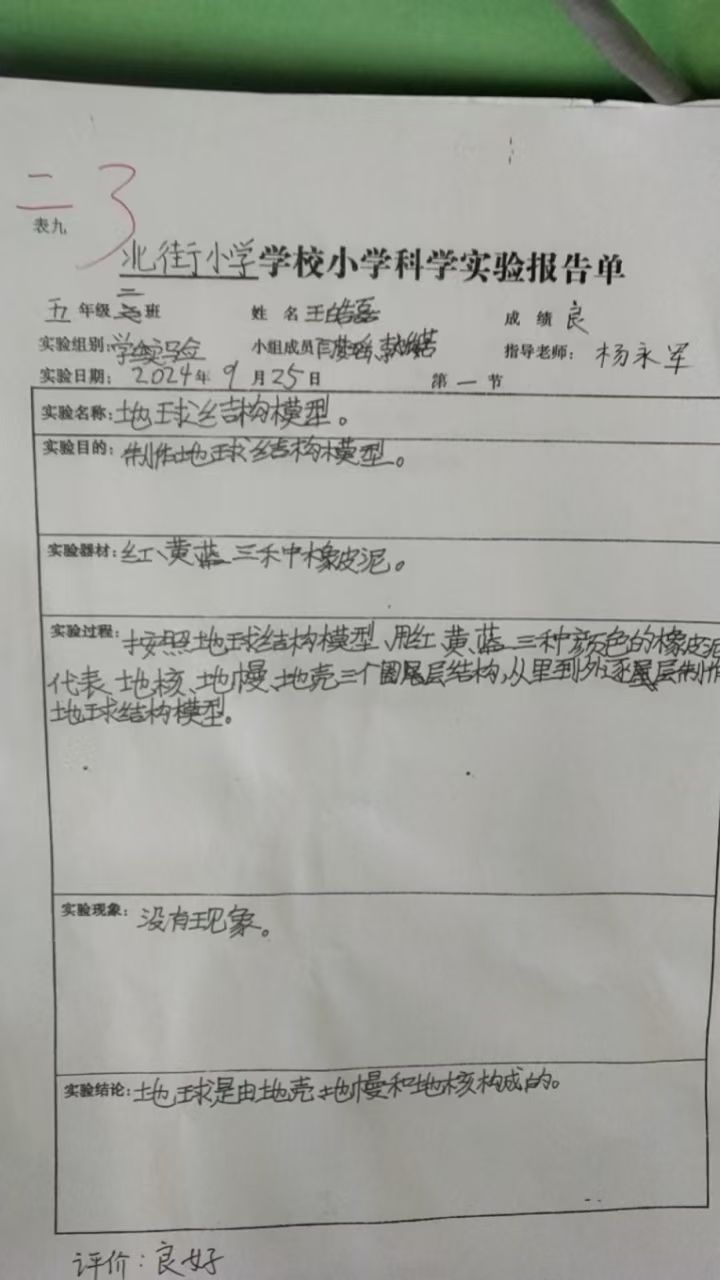 二 3
表九
北街小学学校小学科学实验报告单
五年级二班 姓名 王皓磊 成绩 良
实验组别: 学生实验 小组成员 指导老师: 杨永军
实验日期: 2024年9月25日 第一节
实验名称: 地球结构模型。
实验目的: 制作地球结构模型。
实验器材: 红、黄、蓝三禾中橡皮泥。
实验过程: 按照地球结构模型、用红、黄、蓝三种颜色的橡皮泥
代表地核、地幔、地壳三个圈层结构,从里到外逐层制作
地球结构模型。
实验现象: 没有现象。
实验结论: 地球是由地壳、地幔和地核构成的。
评价: 良好